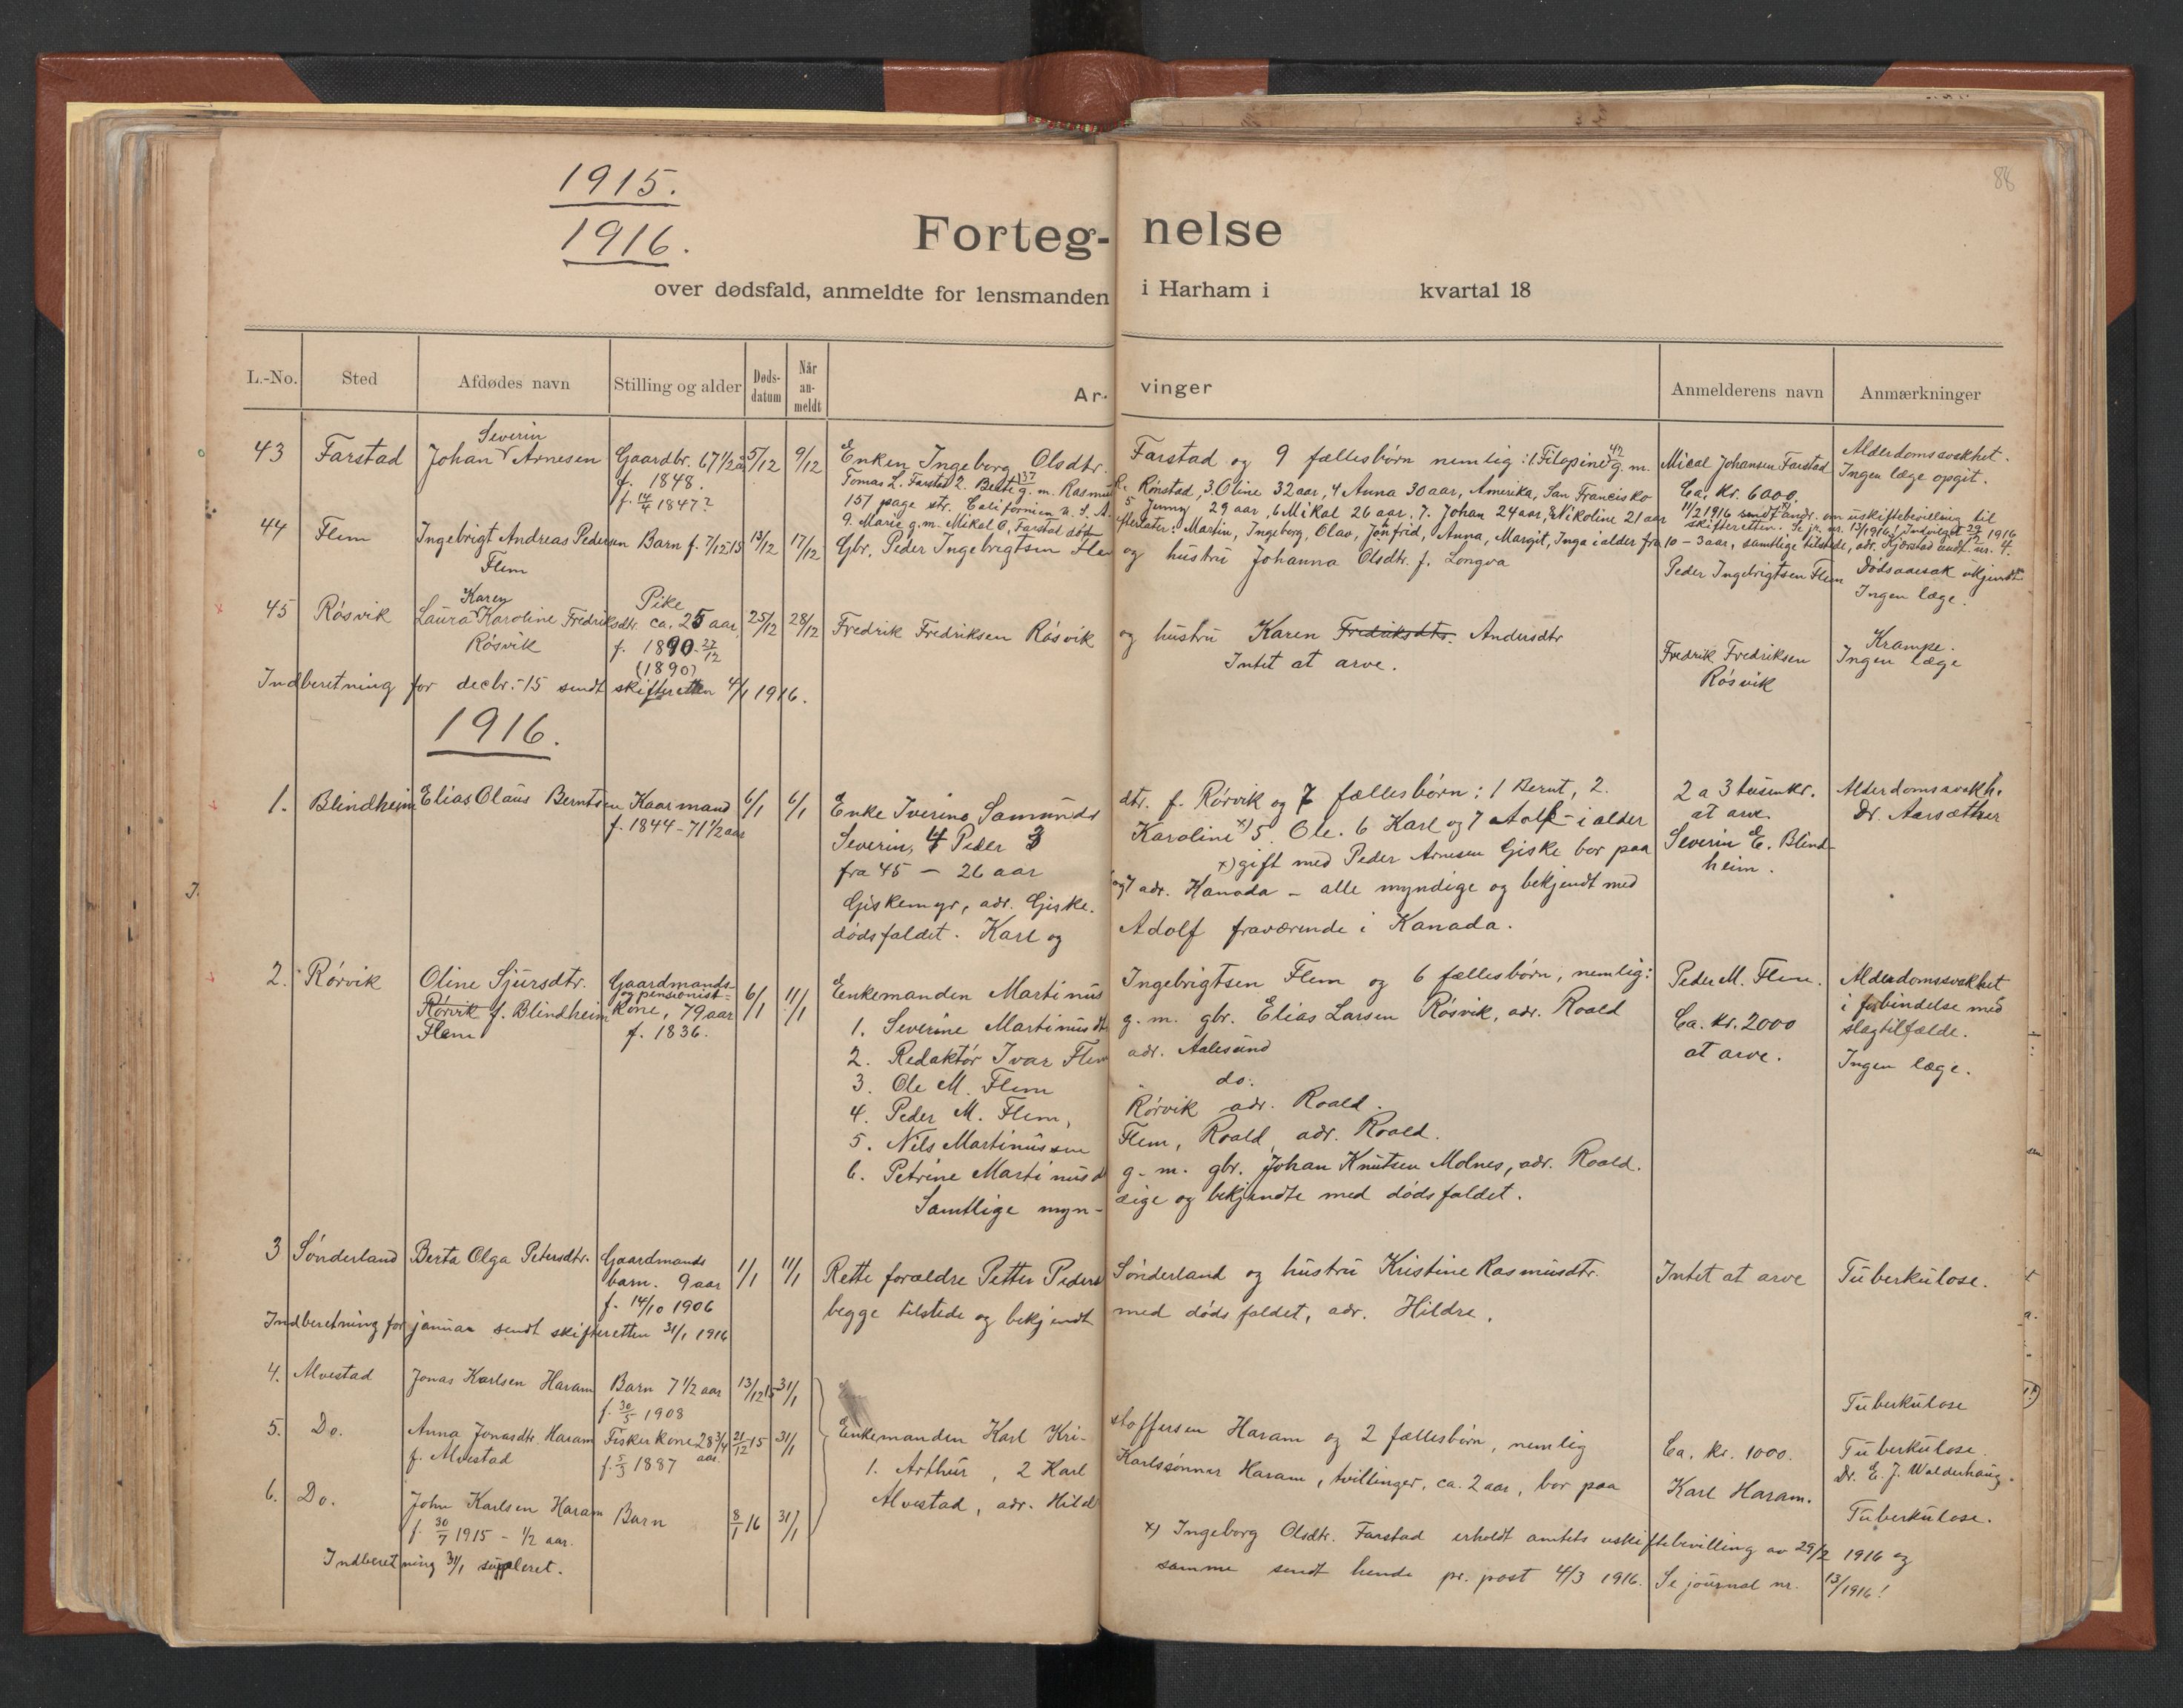 88
1915.
1916.
Forteg- nelse
over dødsfald, anmeldte for lensmanden i Harham i kvartal 18
L.-No. Sted Afdødes navn Stilling og alder Døds-datum Når an-meldt Ar- vinger Anmelderens navn Anmærkninger
43 Farstad Johan Severin Arnesen Gaardbr. 67 1/2 å 5/12 9/12 Enken Ingeborg Olsdtr. Farstad og 9 fællesbørn nemlig: 1. Filopine 42 g. m. Mical Johansen Farstad Alderdomssvakhet.
f. 1848. Tomas L. Farstad 2. Berte 37 g. m. Rasmus K. Rönstad, 3. Oline 32 aar, 4 Anna 30 aar, Amerika, San Francisko Ca. Kr. 6000. Ingen læge opgit.
f. 14/4 1847? 157 page str. Californien U. S. A. 5 Jenny 29 aar, 6 Mikal 26 aar, 7. Johan 24 aar, 8 Nikoline 21 aar 11/2 1916 sendt andr. om uskiftebevilling til
9. Marie g. m. Mikal O. Farstad død efterlater: Martin, Ingeborg, Olav, Jonfrid, Anna, Margit, Inga i alder fra 10 - 3 aar, samtlige tilstede, adr. Kjerstad
skifteretten. Se jr. nr. 13/1916! Indvilget 29/2 1916
44 Flem Ingebrigt Andreas Pedersen Barn f. 7/12 15 13/12 17/12 Gbr. Peder Ingebrigtsen Flem og hustru Johanna Olsdtr. f. Longva Peder Ingebrigtsen Flem Dødsaarsak ukjendt
Flem Ingen læge.
45 Røsvik Laura Karen Karoline Fredriksdtr. Pike ca. 25 aar 25/12 28/12 Fredrik Fredriksen Røsvik og hustru Karen Fredriksdtr. Andersdtr Krampe.
Røsvik f. 1890 - 27/12 Intet at arve. Fredrik Fredriksen Ingen læge
(1890) Røsvik
Indberetning for decbr. -15 sendt skifteretten 4/1 1916.
1916.
1. Blindheim Elias Olaus Berntsen Kaarmand 6/1 6/1 Enke Iverine Samunds dtr. f. Rørvik og 7 fællesbørn: 1 Bernt, 2. 2 a 3 tusen kr. Alderdomssvakh.
f. 1844 - 71 1/2 aar Severin, 4 Peder 3 Karoline x) 5 Ole. 6 Karl og 7 Adolf - i alder at arve. Dr. Aarsæther
fra 45 - 26 aar x) gift med Peder Arnesen Giske bor paa Severin E. Blind-
Giskemyr, adr. Giske. og 7 adr. Kanada - alle myndige og bekjendt med heim.
dødsfaldet. Karl og Adolf fraværende i Kanada.
2. Rørvik Oline Sjursdtr. Gaardmands- og pensionist- 6/1 11/1 Enkemanden Martinus Ingebrigtsen Flem og 6 fællesbørn, nemlig: Peder M. Flem. Alderdomssvakhet
Rørvik f. Blindheim kone, 79 aar 1. Severine Martinusdtr g. m. gbr. Elias Larsen Røsvik, adr. Roald Ca. kr. 2000 i forbindelse med
Flem f. 1836. 2. Redaktør Ivar Flem adr. Aalesund at arve. slagtilfælde.
3. Ole M. Flem do. Ingen læge.
4. Peder M. Flem, Rørvik adr. Roald.
5. Nils Martinussen Flem, Roald, adr. Roald.
6. Petrine Martinusd g. m. gbr. Johan Knutsen Molnes, adr. Roald.
Samtlige myn- dige og bekjendte med dødsfaldet.
3 Sønderland Berta Olga Petersdtr. Gaardmands 1/1 11/1 Rette forældre Petter Peders Sønderland og hustru Kristine Rasmusdtr. Intet at arve Tuberkulose.
barn. 9 aar begge tilstede og bekjendt med dødsfaldet, adr. Hildre.
f. 14/10 1906
Indberetning for januar sendt skifteretten 31/1 1916
4. Alvestad Jonas Karlsen Haram Barn 7 1/2 aar 13/12 15 31/1 Tuberkulose
f. 30/5 1908
5. Do. Anna Jonasdtr. Haram Fiskerkone 28 3/4 aar 21/12 15 31/1 Enkemanden Karl Kri- stoffersen Haram og 2 fællesbørn, nemlig Ca. kr. 1000. Tuberkulose.
f. Alvestad f. 5/3 1887 1. Arthur, 2 Karl Karlssønner Haram, tvillinger, ca. 2 aar, bor paa Karl Haram. Dr. E. J. Walderhaug.
6. Do. John Karlsen Haram Barn 8/1 16 31/1 Alvestad, adr. Hild Tuberkulose.
f. 30/7 1915 - 1/2 aar.
Indberetning 31/1 suppleret.
x) Ingeborg Olsdtr. Farstad erholdt amtets uskiftebevilling av 29/2 1916 og
samme sendt hende pr. post 4/3 1916. Se journal nr. 13/1916!